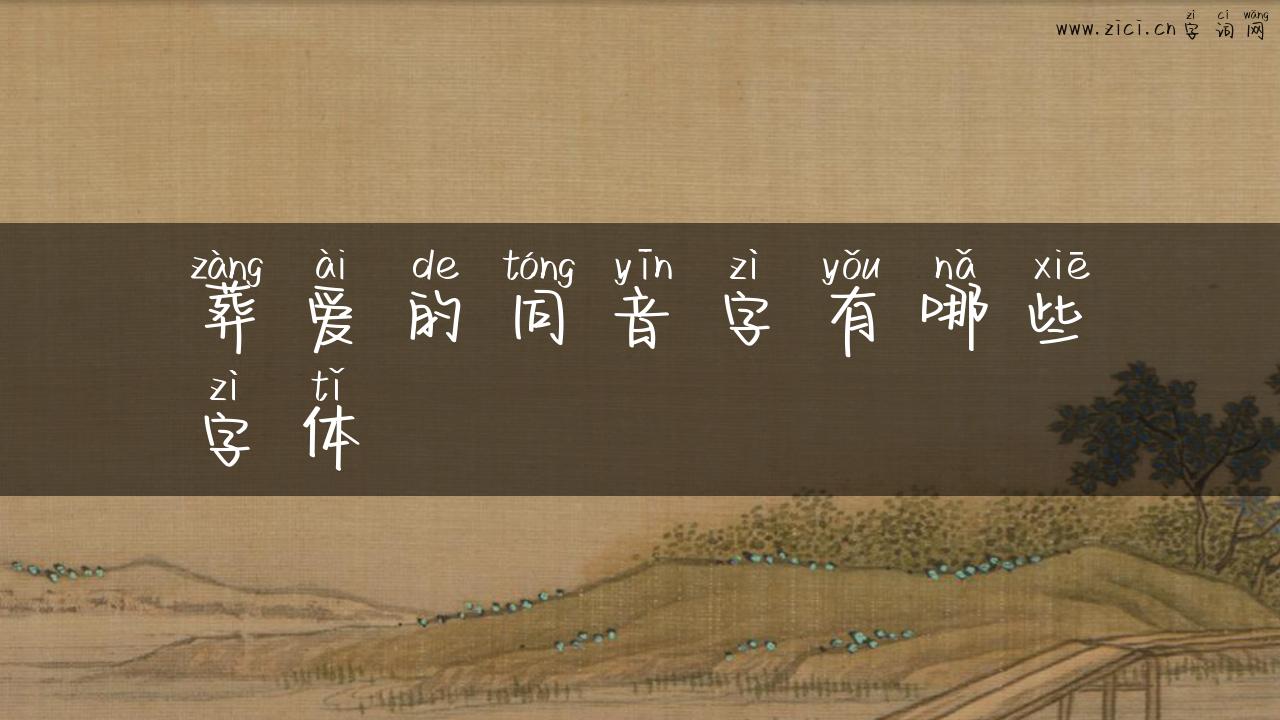 zì cí wǎng
www.zici.cn 字词网
zàng ài de tóng yīn zì yǒu nǎ xiē
葬爱的同音字有哪些
zì tǐ
字体